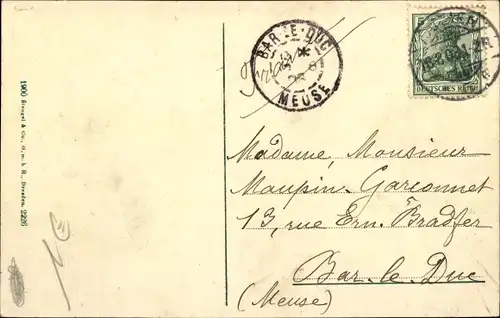 BAR-LE-DUC
MEUSE
DEUTSCHES REICH
1900 Stengel & Co., G.m.b.H., Dresden. 2226
Madame, Monsieur
Maupin-Garconnet
13, rue Ern. Bradfer
Bar-le-Duc
(Meuse)